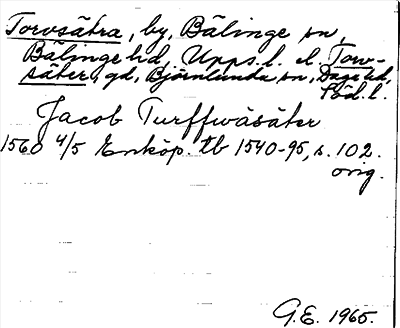 Torvsätra, by, Bälinge sn,
Bälinge hd, Upps. l. el. Torv-
säter, gd, Björnlunda sn, Daga hd,
Söd. l.
Jacob Turffwäsäter
1560 4/5 Enköp. tb 1540-95, s. 102.
orig.
G.E. 1965.